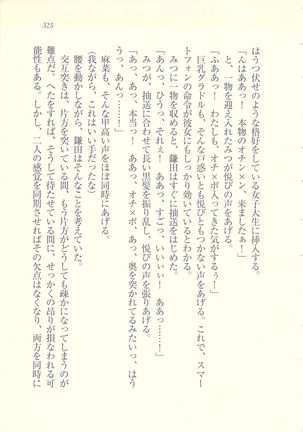 325
はうつ伏せのような格好をしている女子大生に挿入する。
「んはああっ！　本物のオチン×ン、来ましたぁー！」
と、一物を迎え入れたみつが悦びの声をあげる。
「ふああっ！　わたしも、オチ×ポ入ってきた気がするぅー！」
巨乳グラドルも、そんな戸惑いとも悦びともつかない声をあげる。これで、スマー
トフォンの命令が彼女にもしっかり効いているとわかる。
みつに一物を収めると、鎌田はすぐに抽送をはじめた。
「あんっ、ひうっ、それぇ！　ああっ、すごっ、いいぃぃ！　ああっ……！」
みつが、抽送に合わせて長い黒髪を振り乱し、悦びの声を張りあげる。
「あっ、あっ、本当っ！　ああっ、オチ×ポ、あっ、奥を突かれてるみたいっ、はう
うっ、あんっ……！」
麻菜も、そんな甲高い声をほぼ同時にあげる。
（我ながら、これはいい手だったな）
腰を動かしながら、鎌田はそんなことを考えていた。
交互突きは、片方を突いている間、もう片方がどうしても疎かになってしまうのが
難点だ。へたをすれば、そうして待たせている間に、せっかくの昂りが損なわれる可
能性もある。しかし、二人の感覚を同期させればその欠点はなくなり、両方を同時に